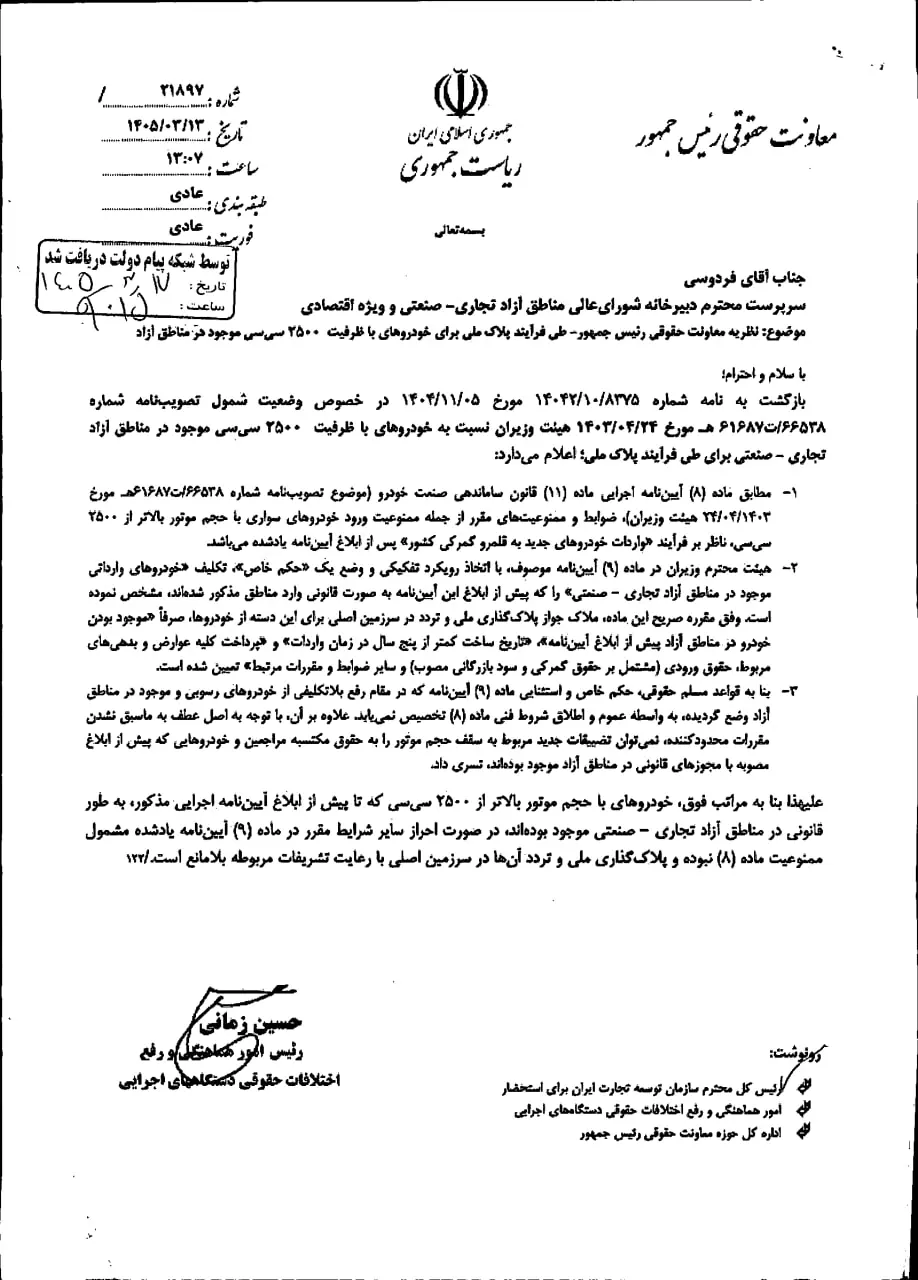 معاونت حقوقی رئیس جمهور
جمهوری اسلامی ایران
ریاست جمهوری
بسمه‌تعالی
شماره: ۲۱۸۹۷ /
تاریخ: ۱۴۰۵/۰۳/۱۳
ساعت: ۱۳:۰۷
طبقه بندی: عادی
فوریت: عادی
توسط شبکه پیام دولت دریافت شد
تاریخ: ۱۴۰۵/۳/۱۷
ساعت:
جناب آقای فردوسی
سرپرست محترم دبیرخانه شورای‌عالی مناطق آزاد تجاری- صنعتی و ویژه اقتصادی
موضوع: نظریه معاونت حقوقی رئیس جمهور- طی فرآیند پلاک ملی برای خودروهای با ظرفیت ۲۵۰۰ سی‌سی موجود در مناطق آزاد
با سلام و احترام؛
بازگشت به نامه شماره ۱۴۰۴۲/۱۰/۸۳۷۵ مورخ ۱۴۰۴/۱۱/۰۵ در خصوص وضعیت شمول تصویب‌نامه شماره
۶۶۵۳۸/ت۶۱۶۸۷ هـ مورخ ۱۴۰۳/۰۴/۲۴ هیئت وزیران نسبت به خودروهای با ظرفیت ۲۵۰۰ سی‌سی موجود در مناطق آزاد
تجاری - صنعتی برای طی فرآیند پلاک ملی؛ اعلام می‌دارد:
۱- مطابق ماده (۸) آیین‌نامه اجرایی ماده (۱۱) قانون ساماندهی صنعت خودرو (موضوع تصویب‌نامه شماره ۶۶۵۳۸/ت۶۱۶۸۷هـ مورخ
۲۴/۰۴/۱۴۰۳ هیئت وزیران)، ضوابط و ممنوعیت‌های مقرر از جمله ممنوعیت ورود خودروهای سواری با حجم موتور بالاتر از ۲۵۰۰
سی‌سی، ناظر بر فرآیند «واردات خودروهای جدید به قلمرو گمرکی کشور» پس از ابلاغ آیین‌نامه یادشده می‌باشد.
۲- هیئت محترم وزیران در ماده (۹) آیین‌نامه موصوف، با اتخاذ رویکرد تفکیکی و وضع یک «حکم خاص»، تکلیف «خودروهای وارداتی
موجود در مناطق آزاد تجاری - صنعتی» را که پیش از ابلاغ این آیین‌نامه به صورت قانونی وارد مناطق مذکور شده‌اند، مشخص نموده
است. وفق مقرره صریح این ماده، ملاک جواز پلاک‌گذاری ملی و تردد در سرزمین اصلی برای این دسته از خودروها، صرفاً «موجود بودن
خودرو در مناطق آزاد پیش از ابلاغ آیین‌نامه»، «تاریخ ساخت کمتر از پنج سال در زمان واردات» و «پرداخت کلیه عوارض و بدهی‌های
مربوط، حقوق ورودی (مشتمل بر حقوق گمرکی و سود بازرگانی مصوب) و سایر ضوابط و مقررات مرتبط» تعیین شده است.
۳- بنا به قواعد مسلم حقوقی، حکم خاص و استثنایی ماده (۹) آیین‌نامه که در مقام رفع بلاتکلیفی از خودروهای رسوبی و موجود در مناطق
آزاد وضع گردیده، به واسطه عموم و اطلاق شروط فنی ماده (۸) تخصیص نمی‌یابد. علاوه بر آن، با توجه به اصل عطف به ماسبق نشدن
مقررات محدودکننده، نمی‌توان تضییقات جدید مربوط به سقف حجم موتور را به حقوق مکتسبه مراجعین و خودروهایی که پیش از ابلاغ
مصوبه با مجوزهای قانونی در مناطق آزاد موجود بوده‌اند، تسری داد.
علیهذا بنا به مراتب فوق، خودروهای با حجم موتور بالاتر از ۲۵۰۰ سی‌سی که تا پیش از ابلاغ آیین‌نامه اجرایی مذکور، به طور
قانونی در مناطق آزاد تجاری - صنعتی موجود بوده‌اند، در صورت احراز سایر شرایط مقرر در ماده (۹) آیین‌نامه یادشده مشمول
ممنوعیت ماده (۸) نبوده و پلاک‌گذاری ملی و تردد آن‌ها در سرزمین اصلی با رعایت تشریفات مربوطه بلامانع است./۱۲۲
حسین زمانی
رئیس امور هماهنگی و رفع
اختلافات حقوقی دستگاه‌های اجرایی
رونوشت:
رئیس کل محترم سازمان توسعه تجارت ایران برای استحضار
امور هماهنگی و رفع اختلافات حقوقی دستگاه‌های اجرایی
اداره کل حوزه معاونت حقوقی رئیس جمهور